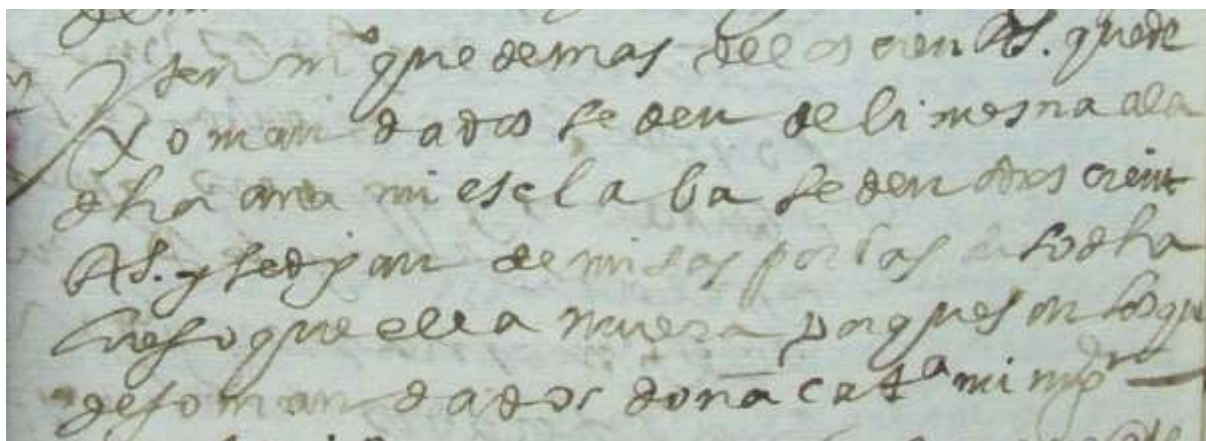 Yten m^do que demas de los cien Rs. que de
xo man dados se den de limosna a la
dha ana mi escla ba se den otros cient
Rs. y se digan de misas por la susodha
luego que ella muera porque son los que
dejo man dados doña Cat^a mi